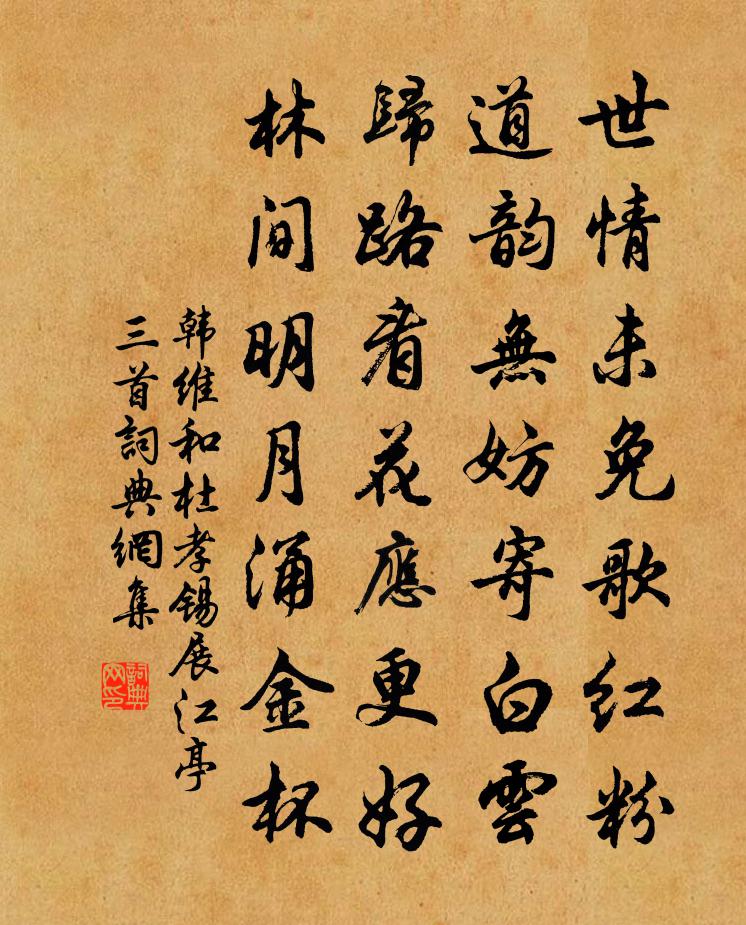 世情未免歌紅粉
道韵無妨寄白雲
歸路看花應更好
林间明月涌金杯
韩維和杜孝锡展江亭
三首詞典網集
詞典
网印